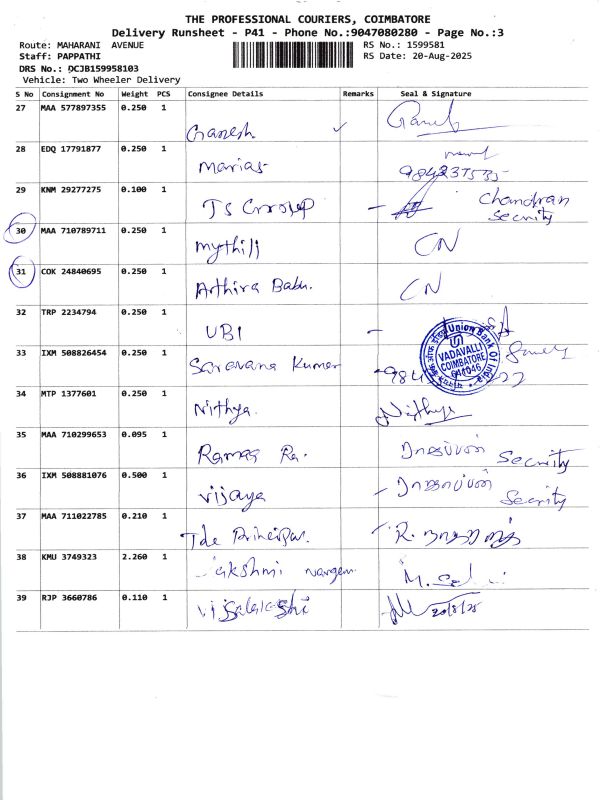 THE PROFESSIONAL COURIERS, COIMBATORE
Delivery Runsheet - P41 - Phone No.:9047080280 - Page No.:3
Route: MAHARANI AVENUE RS No.: 1599581
Staff: PAPPATHI RS Date: 20-Aug-2025
DRS No.: DCJB159958103
Vehicle: Two Wheeler Delivery
S No Consignment No Weight PCS Consignee Details Remarks Seal & Signature
27 MAA 577897355 0.250 1 Ganesh ✓ Ganesh
28 EDQ 17791877 0.250 1 Marias
29 KNM 29277275 0.100 1 TS Group Chandran Security
30 MAA 710789711 0.250 1 Mythili CN
31 COK 24840695 0.250 1 Arthira Babu. CN
32 TRP 2234794 0.250 1 UBI
Union Bank Of India
VADAVALLI
COIMBATORE
641046
33 IXM 508826454 0.250 1 Saravana Kumar
34 MTP 1377601 0.250 1 Nithya. Nithya
35 MAA 710299653 0.095 1 Security
36 IXM 508881076 0.500 1 Vijaya Security
37 MAA 711022785 0.210 1 R.
38 KMU 3749323 2.260 1 Lakshmi
39 RJP 3660786 0.110 1 20/8/25